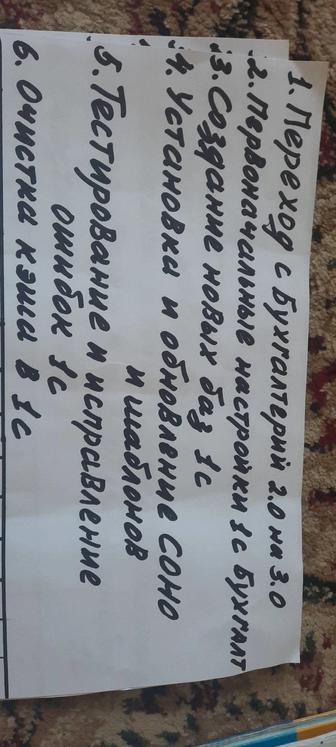 1. Переход с Бухгалтерий 2.0 на 3.0
2. Первоначальные настройки 1с Бухгалт
3. Создание новых баз 1с
4. Установка и обновление СОНО
и шаблонов
5. Тестирование и исправление
ошибок 1с
6. Очистка кэша в 1с